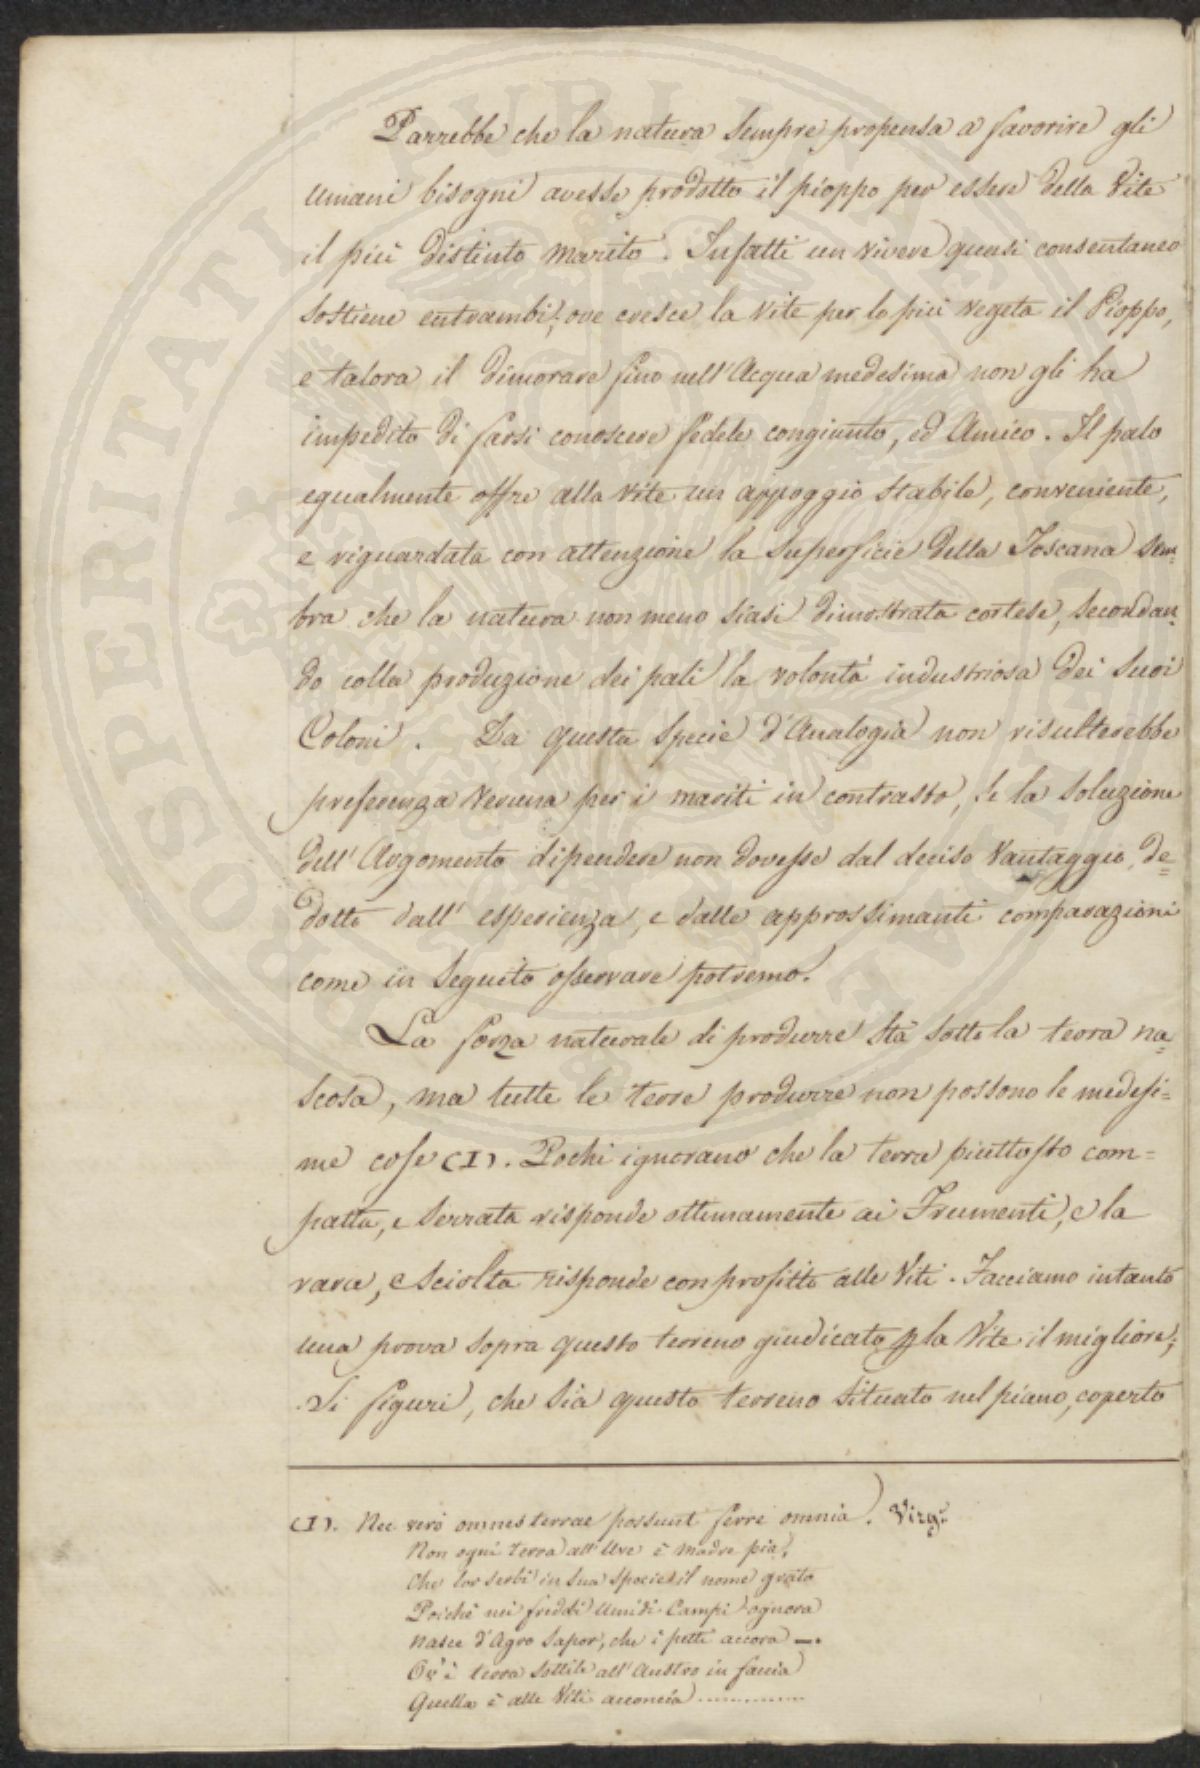 Parrebbe che la natura sempre propensa a favorire gli
umani bisogni avesse prodotto il pioppo per essere della Vite
il più distinto marito. Infatti un vivere quasi consentaneo
sostiene entrambi; ove cresce la Vite per lo più vegeta il Pioppo,
e talora il dimorare fino nell'Acqua medesima non gli ha
impedito di farsi conoscere fedele congiunto, ed Amico. Il palo
egualmente offre alla Vite un appoggio stabile, conveniente,
e riguardata con attenzione la Superficie della Toscana sem=
bra che la natura non meno siasi dimostrata cortese, secondan=
do colla produzione dei pali la volontà industriosa dei suoi
Coloni. Da questa specie d'Analogia non risulterebbe
preferenza veruna per i mariti in contrasto, se la soluzione
dell'Argomento dipendere non dovesse dal deciso Vantaggio, de=
dotto dall'esperienza, e dalle approssimanti comparazioni
come in seguito osservare potremo.
La forza naturale di produrre stà sotto la terra na=
scosa, ma tutte le terre produrre non possono le medesi=
me cose (I). Pochi ignorano che la terra piuttosto com=
patta, e serrata risponde ottimamente ai Frumenti, e la
rara, e sciolta risponde con profitto alle Viti. Facciamo intanto
una prova sopra questo terreno giudicato p la Vite il migliore;
Si figuri, che sia questo terreno situato nel piano, coperto
(I). Nec verò omnes terrae possunt ferre omnia. Virg.
Non ogni terra all'Uve è madre pia,
Che lor serbi in sua specie il nome grato
Poichè nei freddi umidi Campi ognora
Nasce d'Agro sapor, che i petti accora —.
Ov'è terra sottile all'Austro in faccia
Quella è alle Viti acconcia .............